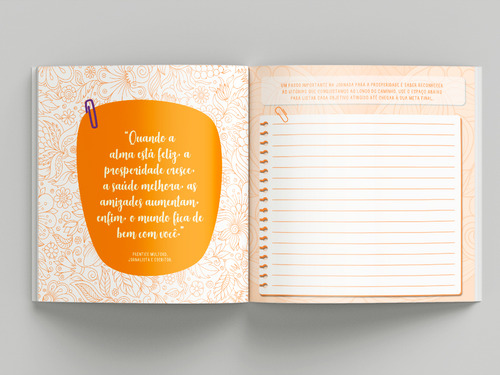 "Quando a
alma está feliz, a
prosperidade cresce,
a saúde melhora, as
amizades aumentam,
enfim, o mundo fica de
bem com você."
JORNALISTA E ESCRITOR
UM PASSO IMPORTANTE NA JORNADA PARA A PROSPERIDADE É SABER RECONHECER
AS VITÓRIAS QUE CONQUISTAMOS AO LONGO DO CAMINHO. USE O ESPAÇO ABAIXO
PARA LISTAR CADA OBJETIVO ATINGIDO ATÉ CHEGAR À SUA META FINAL.